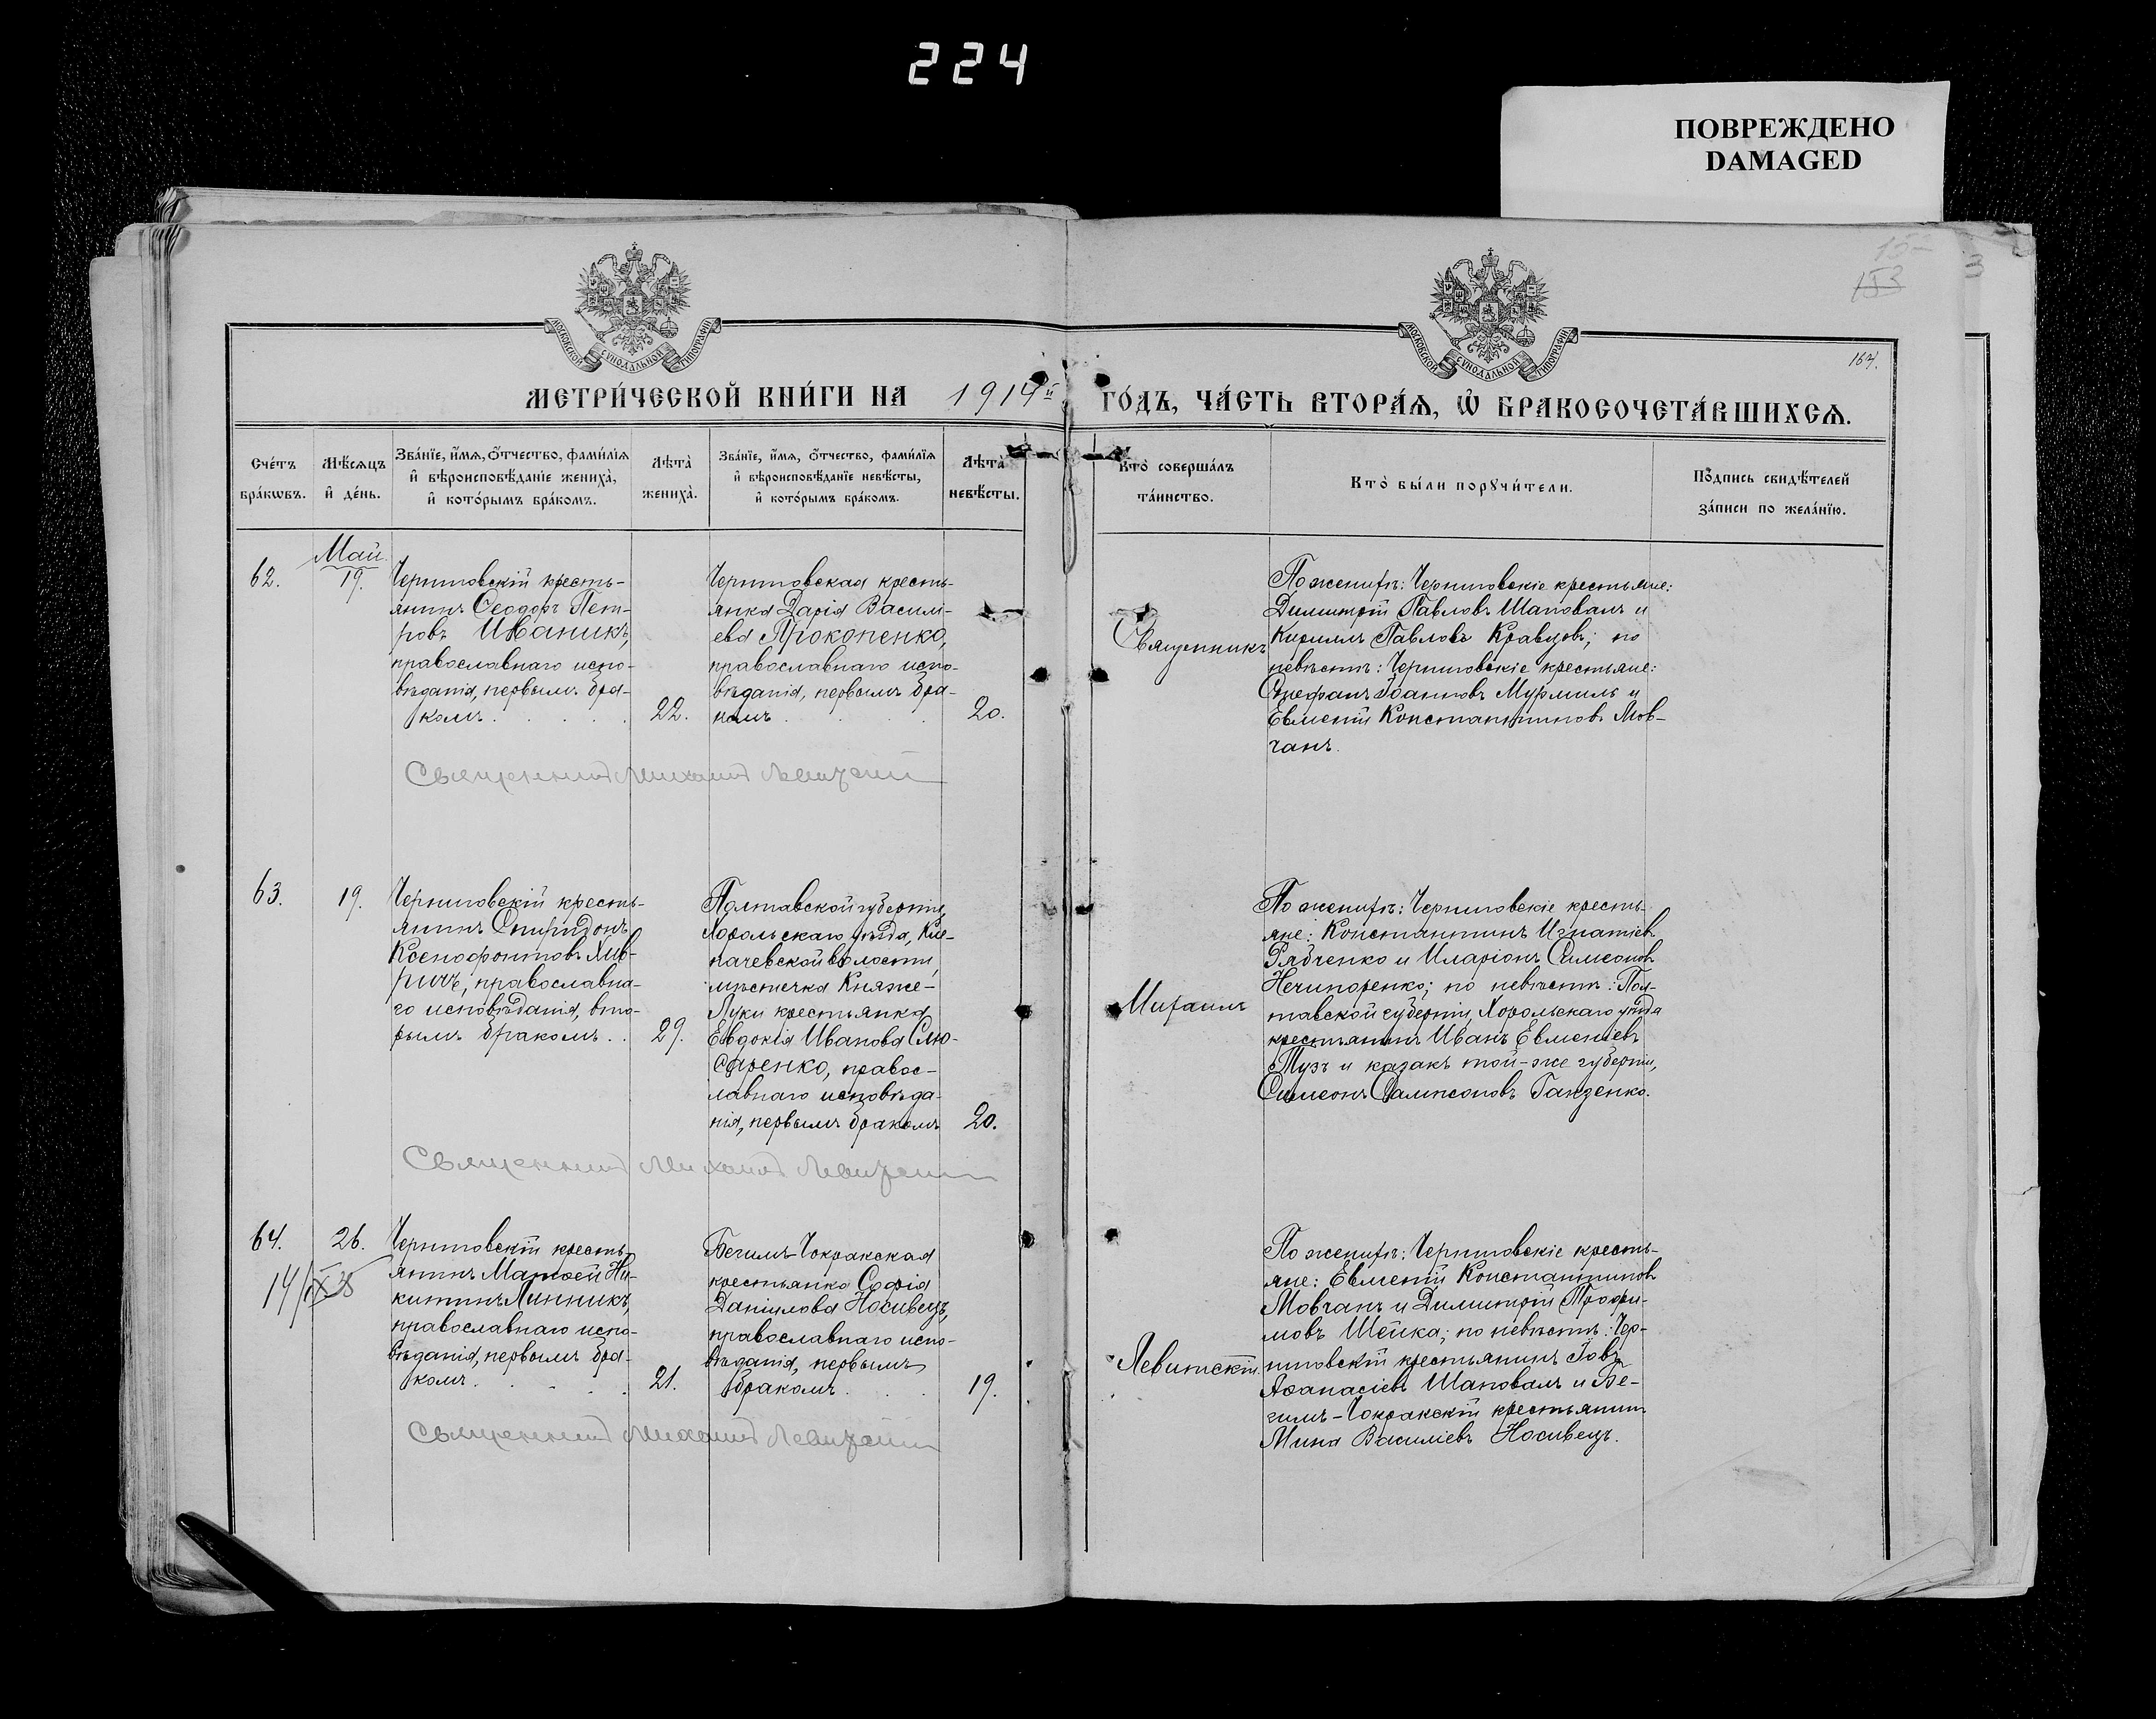 224
ПОВРЕЖДЕНО
DAMAGED
153
167.
МОСКОВСКОЙ СѴНОДАЛЬНОЙ ТИПОГРАФІИ
МОСКОВСКОЙ СѴНОДАЛЬНОЙ ТИПОГРАФІИ
МЕТРИ́ЧЕСКОЙ КНИ́ГИ НА 1914й ГО́ДЪ, ЧА́СТЬ ВТОРА́Я, Ѡ БРАКОСОЧЕТА́ВШИХСЯ.
Сче́тъ
бра́кѡвъ.
Мѣ́сяцъ
и҆ де́нь.
Зва́нїе, и҆́мя, ѻ҆́тчество, фами́лїя
и҆ вѣроисповѣ́данїе жениха̀,
и҆ кото́рымъ бра́комъ.
Лѣта̀
жениха̀.
Зва́нїе, и҆́мя, ѻ҆́тчество, фами́лїя
и҆ вѣроисповѣ́данїе невѣ́сты,
и҆ кото́рымъ бра́комъ.
Лѣта̀
невѣ́сты.
Кто̀ соверша́лъ
та́инство.
Кто̀ бы́ли порꙋчи́тели.
По́дпись свидѣ́телей
за́писи по жела́нїю.
62.
Май
19.
Черниговскій кресть-
янинъ Ѳеодоръ Пет-
ровъ Иваникъ,
православнаго испо-
вѣданія, первымъ бра-
комъ . . . .
22.
Черниговская кресть-
янка Дарія Василі-
ева Прокопенко,
православнаго испо-
вѣданія, первымъ бра-
комъ . . . .
20.
Священникъ
По женихѣ: Черниговскіе крестьяне:
Димитрій Павловъ Шаповалъ и
Кириллъ Павловъ Кравцовъ; по
невѣстѣ: Черниговскіе крестьяне:
Стефанъ Іоанновъ Мурмиль и
Евменій Константиновъ Мов-
чанъ.
Священникъ Михаилъ Левитскій
63.
19.
Черниговскій кресть-
янинъ Спиридонъ
Ксенофонтовъ Хив-
ричъ, православна-
го исповѣданія, вто-
рымъ бракомъ . .
29.
Полтавской губерніи,
Хорольскаго уѣзда,
волости,
мѣстечка Княже-
Луки крестьянка
Евдокія Иванова Слю-
саренко, правос-
лавнаго исповѣда-
нія, первымъ бракомъ
20.
Михаилъ
По женихѣ: Черниговскіе кресть-
яне: Константинъ Игнатіевъ
Рябченко и Иларіонъ Симеоновъ
Нечипоренко; по невѣстѣ: Пол-
тавской губерніи, Хорольскаго уѣзда
крестьянинъ Иванъ Евменіевъ
Тузъ и казакъ той-же губерніи,
Симеонъ Сампсоновъ Ганзенко.
Священникъ Михаилъ Левитскій
64.
26.
14/IX 38
Черниговскій кресть-
янинъ Матѳей Ни-
китинъ Линникъ,
православнаго испо-
вѣданія, первымъ бра-
комъ . . . .
21.
Бегимъ-Чокракская
крестьянка Софія
Даніилова Носивецъ,
православнаго испо-
вѣданія, первымъ
бракомъ . . .
19.
Левитскій.
По женихѣ: Черниговскіе кресть-
яне: Евменій Константиновъ
Мовчанъ и Димитрій Трофи-
мовъ Шейка; по невѣстѣ: Чер-
ниговскій крестьянинъ Іовъ
Аѳанасіевъ Шаповалъ и Бе-
гимъ-Чокракскій крестьянинъ
Мина Василіевъ Носивецъ.
Священникъ Михаилъ Левитскій